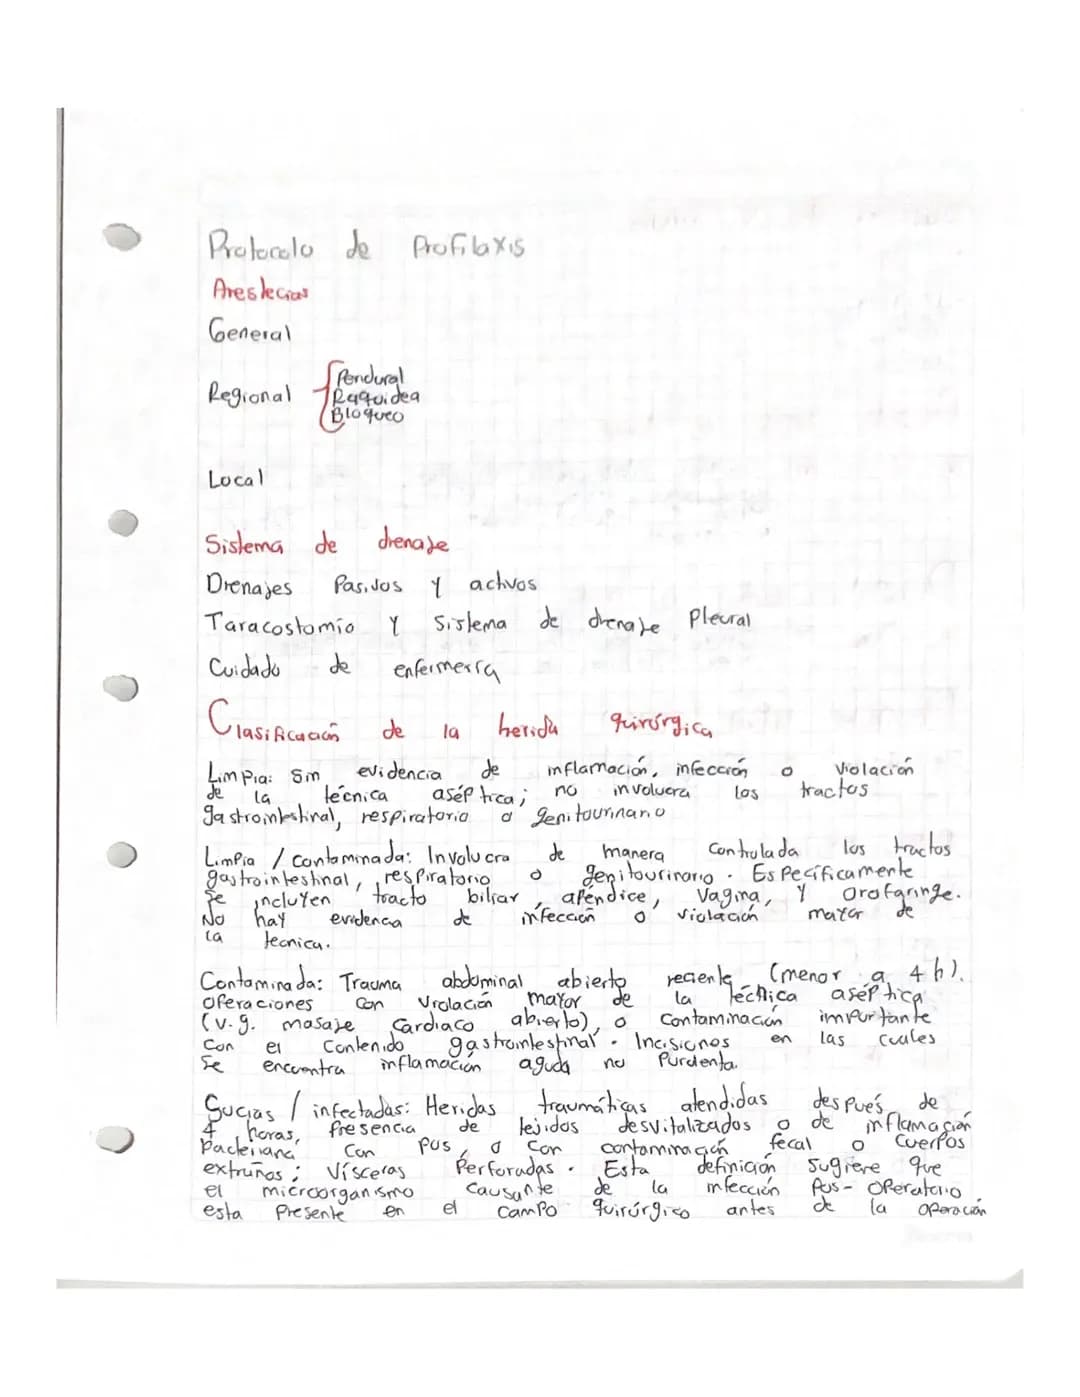 Protocolo de Profilaxis
Anestecias
General
Regional
Peridural
Raquidea
Bloqueo
Local
Sistema de drenaje
Drenajes Pasivos y activos
Taracostomio y Sistema de drenaje Pleural
Cuidado de enfermería
Clasificación de la herida quirúrgica
Limpia: Sin evidencia de inflamación, infección o violación
de la técnica aséptica; no involucra los tractos
gastrointestinal, respiratorio o genitourinario
Limpia / contaminada: Involucra de manera Controlada los tractos
gastrointestinal, respiratorio o genitourinario. Específicamente
se incluyen tracto biliar, apéndice, Vagina, y orofaringe.
No hay evidencia de infección o violación mayor de
la tecnica.
Contaminada: Trauma abdominal abierto reciente (menor a 4 h).
Operaciones con violación mayor de la técnica aséptica
(v.g. masaje cardiaco abierto), o contaminación importante
con el contenido gastrointestinal. Incisiones en las cuales
se encuentra inflamación aguda no Purulenta.
Sucias / infectadas: Heridas traumáticas atendidas después de
4 horas, Presencia de tejidos desvitalizados o de inflamación
bacteriana, Con pus, o con contaminación fecal o cuerpos
extraños; Vísceras Perforadas. Esta definición sugiere que
el microorganismo causante de la infección pos-operatorio
esta Presente en el campo quirúrgico antes de la operación